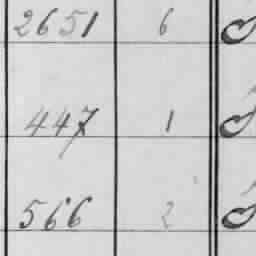 2651 6
447 1
566 2